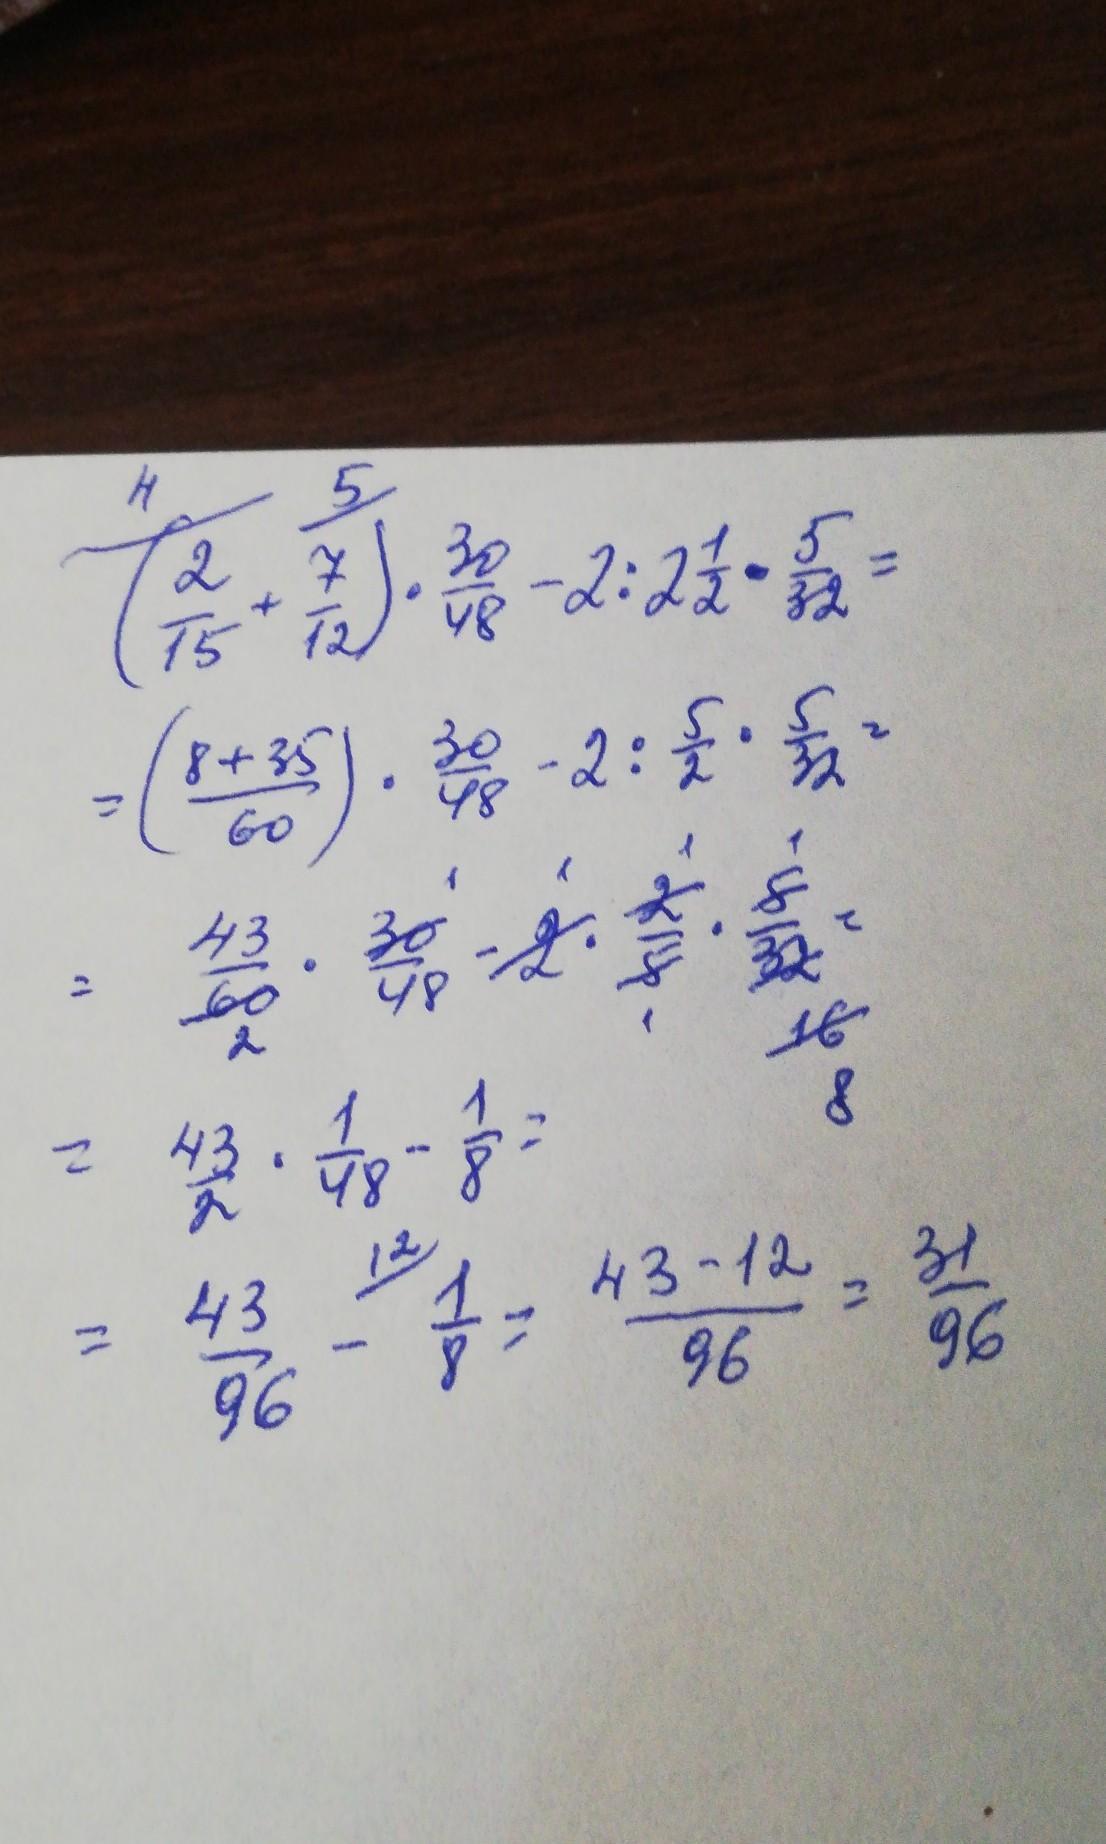 4 5
(2/15 + 7/12) · 30/48 - 2 : 2 1/2 · 5/32 =
= (8+35/60) · 30/48 - 2 : 5/2 · 5/32 =
1 1 1 1
= 43/60 · 30/48 - 2 · 2/5 · 5/32 =
2 1 16
8
= 43/2 · 1/48 - 1/8 =
12
= 43/96 - 1/8 = 43-12/96 = 31/96